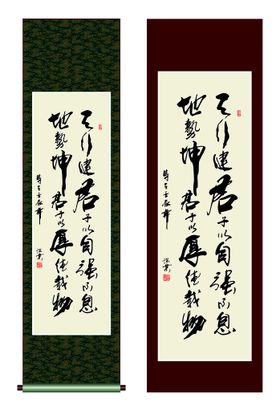 天行健君子以自強不息
地勢坤君子以厚德載物
天行健君子以自強不息
地勢坤君子以厚德載物